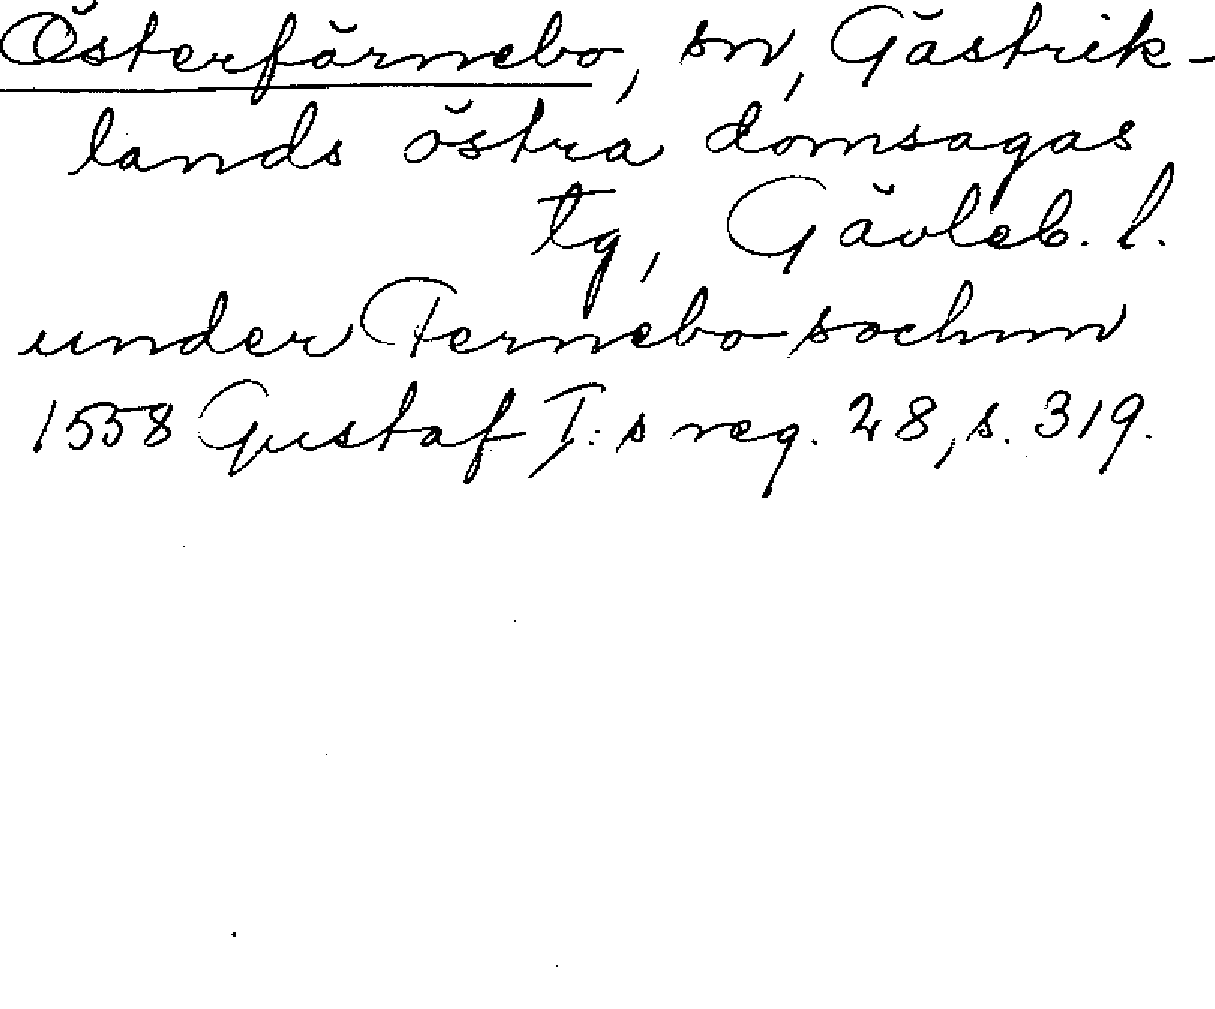 Österfärnebo, sn, Gästrik-
lands östra domsagas
tg, Gävleb. l.
under Fernebo sochnn
1558 Gustaf I:s reg. 28, s. 319.